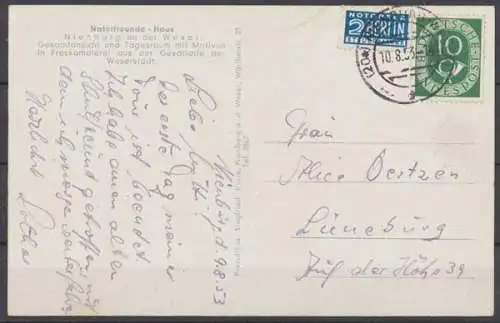 Naturfreunde - Haus
Nienburg an der Weser
Gesamtansicht und Tagesraum mit Motiven
in Freskomalerei aus der Geschichte der
Weserstadt
Nienburg, d. 9.8.53
Liebe
der erste Tag meiner
Tour ist beendet.
Ich habe einen alten
Schulfreund getroffen mit
dem ich morgen weiterfahre
Herzlichst
Lothar
NOTOPFER
2 BERLIN
10.8.53
DEUTSCHE
10
POST
Frau
Alice Oertzen
Lüneburg
Auf der Höhe 39